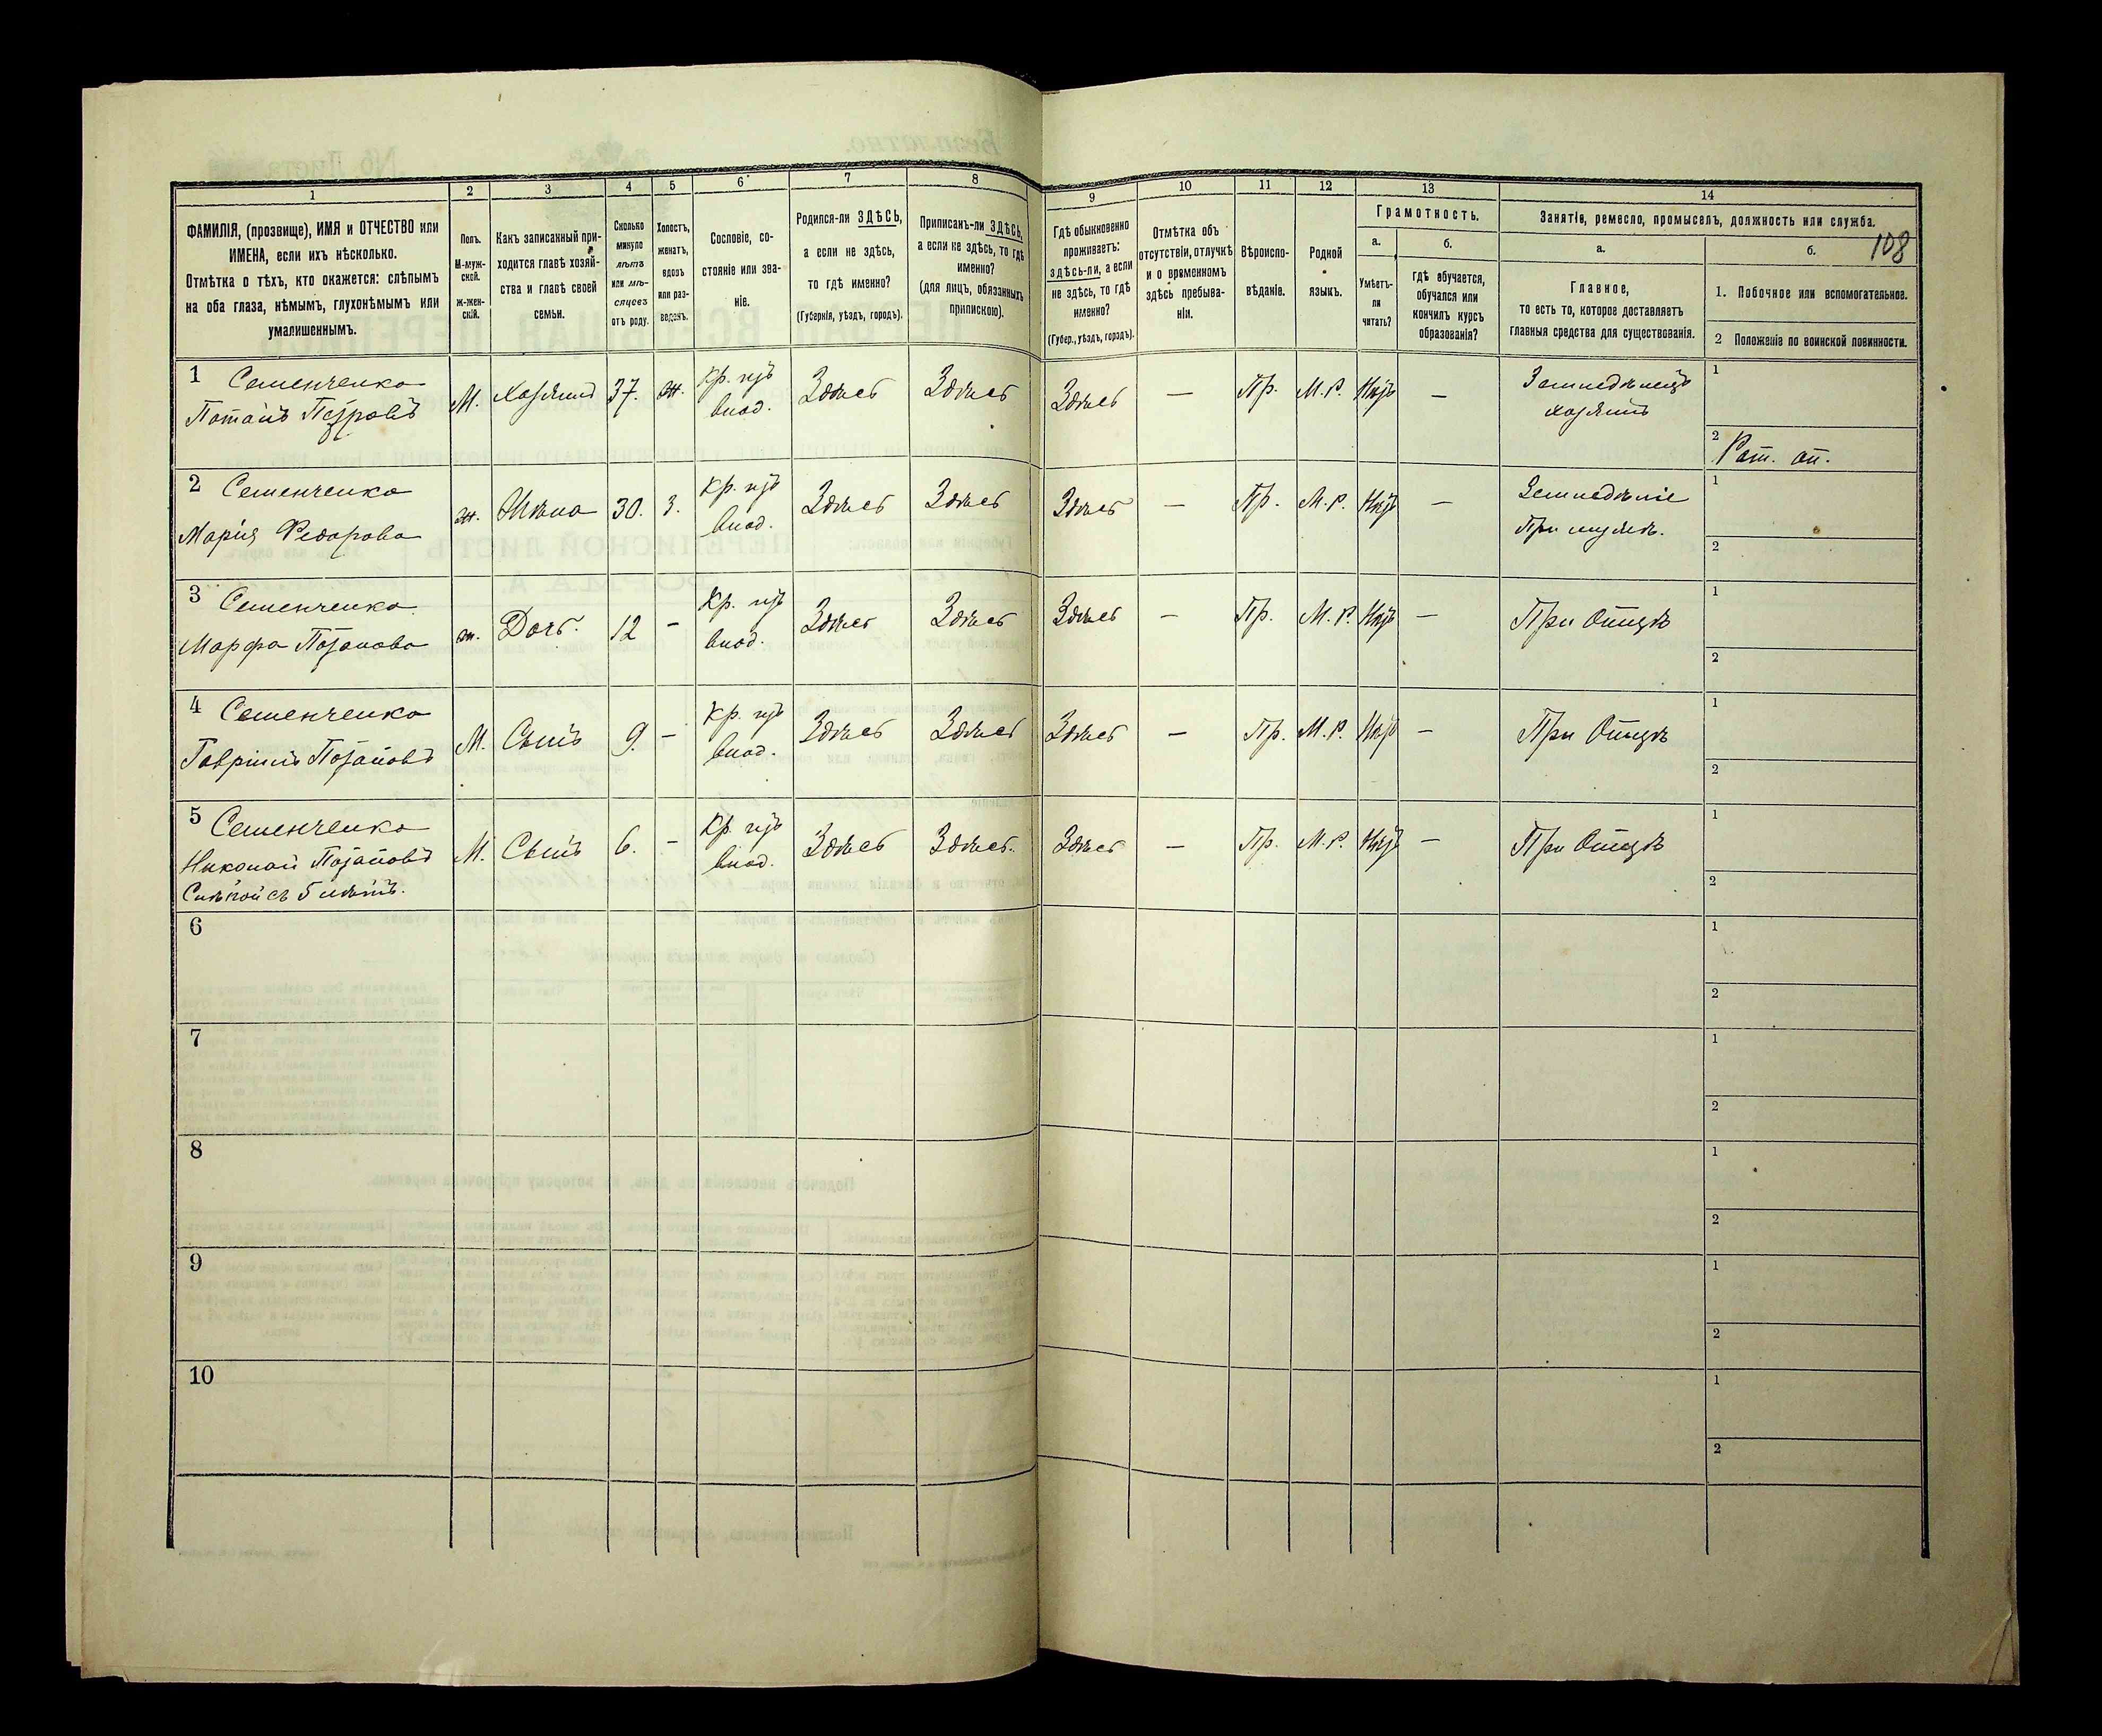 1
2
3
4
5
6
7
8
9
10
11
12
13
14
ФАМИЛІЯ, (прозвище), ИМЯ и ОТЧЕСТВО или
ИМЕНА, если ихъ нѣсколько.
Отмѣтка о тѣхъ, кто окажется: слѣпымъ
на оба глаза, нѣмымъ, глухонѣмымъ или
умалишеннымъ.
Полъ.
М-муж-
ской.
Ж-жен-
скій.
Какъ записанный при-
ходится главѣ хозяй-
ства и главѣ своей
семьи.
Сколько
минуло
лѣтъ
или мѣ-
сяцевъ
отъ роду.
Холостъ,
женатъ,
вдовъ
или раз-
веденъ.
Сословіе, со-
стояніе или зва-
ніе.
Родился-ли ЗДѢСЬ,
а если не здѣсь,
то гдѣ именно?
(Губернія, уѣздъ, городъ).
Приписанъ-ли ЗДѢСЬ,
а если не здѣсь, то гдѣ
именно?
(для лицъ, обязанныхъ
припискою).
Гдѣ обыкновенно
проживаетъ:
здѣсь-ли, а если
не здѣсь, то гдѣ
именно?
(Губер., уѣздъ, городъ).
Отмѣтка объ
отсутствіи, отлучкѣ
и о временномъ
здѣсь пребыва-
ніи.
Вѣроиспо-
вѣданіе.
Родной
языкъ.
Грамотность.
а.
Умѣетъ-
ли
читать?
б.
гдѣ обучается,
обучался или
кончилъ курсъ
образованія?
Занятіе, ремесло, промыселъ, должность или служба.
108
а.
Главное,
то есть то, которое доставляетъ
главныя средства для существованія.
б.
1. Побочное или вспомогательное.
2 Положеніе по воинской повинности.
1 Семенченко
Потапъ Петровъ
М.
Хозяинъ
37.
ж.
Кр. изъ
влад.
Здѣсь
Здѣсь
Здѣсь
—
Пр.
М.Р.
Нѣтъ
—
Земледѣлецъ
хозяинъ
1
2 Рат. оп.
2 Семенченко
Марія Федорова
ж.
Жена
30.
З.
Кр. изъ
влад.
Здѣсь
Здѣсь
Здѣсь
—
Пр.
М.Р.
Нѣтъ
—
Земледѣліе
При мужѣ.
1
2
3 Семенченко
Марфа Потапова
ж.
Дочь.
12
-
Кр. изъ
влад.
Здѣсь
Здѣсь
Здѣсь
—
Пр.
М.Р.
Нѣтъ
—
При Отцѣ
1
2
4 Семенченко
Гавріилъ Потаповъ
М.
Сынъ
9.
-
Кр. изъ
влад.
Здѣсь
Здѣсь
Здѣсь
—
Пр.
М.Р.
Нѣтъ
—
При Отцѣ
1
2
5 Семенченко
Николай Потаповъ
Слѣпой съ 5 лѣтъ.
М.
Сынъ
6.
-
Кр. изъ
влад.
Здѣсь
Здѣсь.
Здѣсь
—
Пр.
М.Р.
Нѣтъ
—
При Отцѣ
1
2
6
1
2
7
1
2
8
1
2
9
1
2
10
1
2